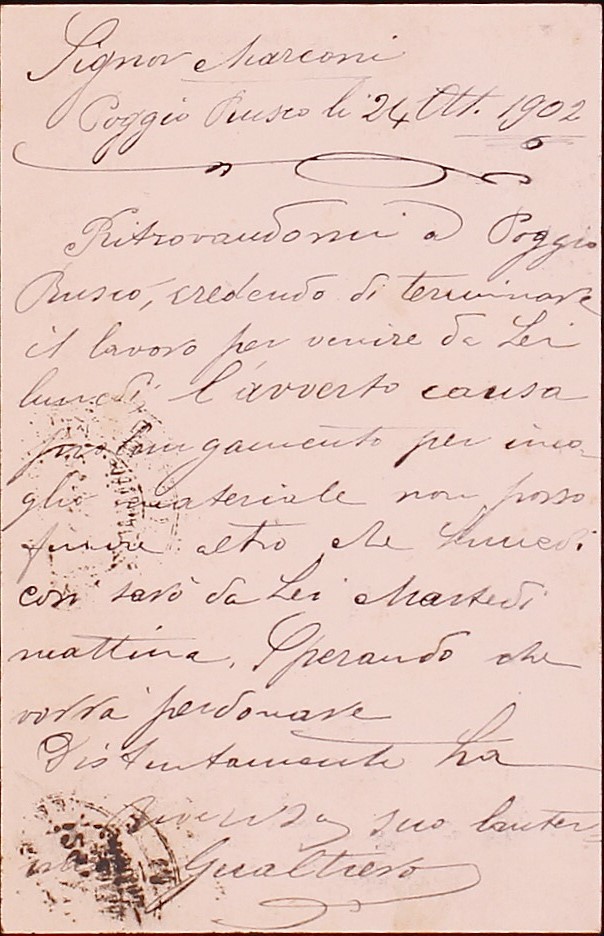 Signor Marconi
Poggio Rusco li 24 Ott. 1902
Ritrovandomi a Poggio
Rusco, credendo di terminare
il lavoro per venire da Lei
lunedì l'avverto causa
prolungamento per inca-
glio materiale non posso
finire altro che Lunedi
cosi sarò da Lei Martedi
mattina. Sperando che
vorrà perdonare
Distintamente La
suo
Gualtiero